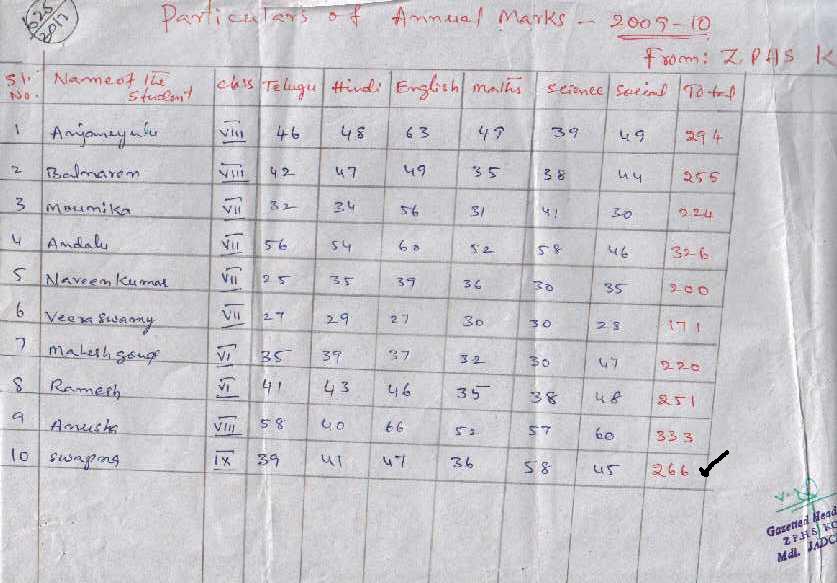 625
2017
Particulars of Annual Marks - 2009-10
From: ZPHS K
Sl. No. Name of the Student Class Telugu Hindi English maths Science Social Total
1 Anjaneyulu VIII 46 48 63 49 39 49 294
2 Balnaren VIII 42 47 49 35 38 44 255
3 Mounika VII 32 34 56 31 41 30 224
4 Andalu VII 56 54 60 52 58 46 326
5 Naveen Kumar VII 25 35 39 36 30 35 200
6 Veera swamy VII 27 29 27 30 30 28 171
7 Mahesh goud VI 35 39 37 32 30 47 220
8 Ramesh VI 41 43 46 35 38 48 251
9 Anusha VIII 58 40 66 52 57 60 333
10 Swapna IX 39 41 47 36 58 45 266 ✓
Gazetted Head
Z.P.H.S KO
Mdl. JADC